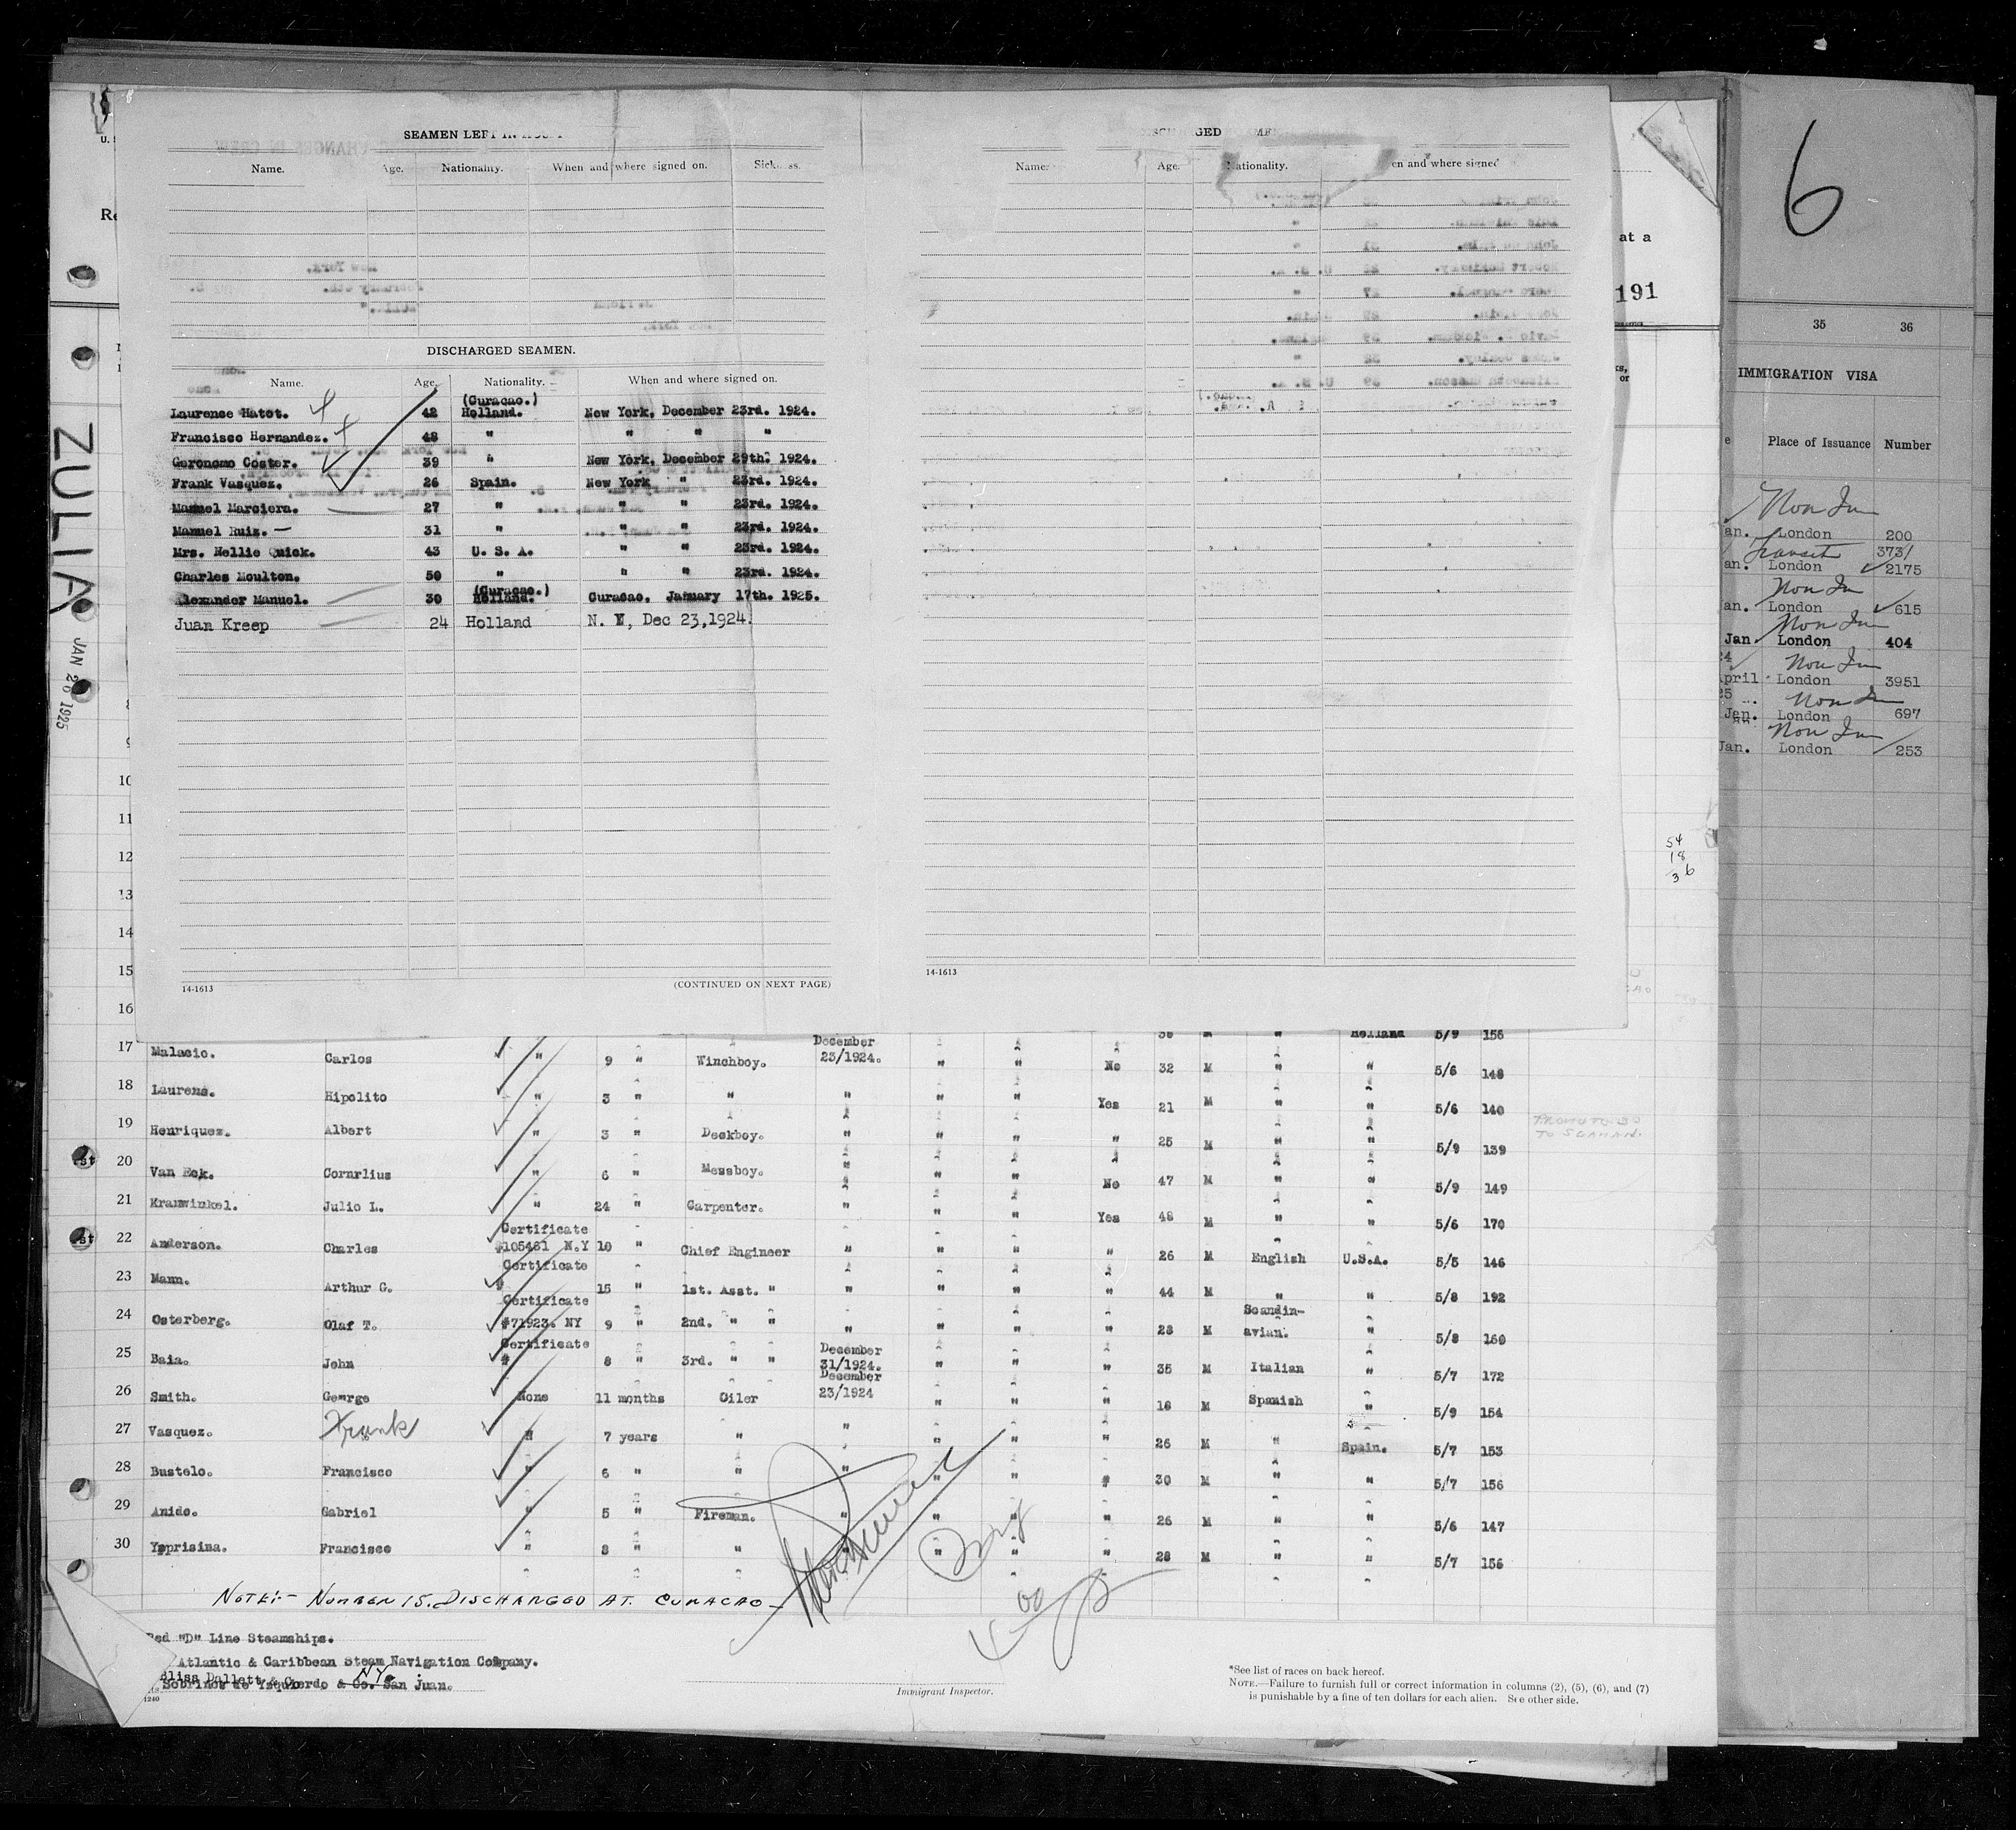 SEAMEN LEFT IN
Name. Age. Nationality. When and where signed on.
DISCHARGED SEAMEN.
Name. Age. Nationality. When and where signed on.
Laurence Hatot. 42 (Curacao.) Holland. New York, December 23rd. 1924.
Francisco Hernandez. 48 " " " "
Geronomo Coster. 39 " New York, December 29th. 1924.
Frank Vasquez. 26 Spain. New York " 23rd. 1924.
Manuel Marciera. 27 " " " 23rd. 1924.
Manuel Ruiz. — 31 " " " 23rd. 1924.
Mrs. Nellie Quick. 43 U. S. A. " " 23rd. 1924.
Charles Moulton. 50 " " " 23rd. 1924.
Alexander Manuel. 30 (Curacao.) Holland. Curacao. January 17th. 1925.
Juan Kreep 24 Holland N. Y, Dec 23,1924.
14-1613 (CONTINUED ON NEXT PAGE)
Age. When and where signed
14-1613
ZULIA
JAN 26 1925
at a
191
6
35 36
IMMIGRATION VISA
Place of Issuance Number
Non Im
an. London 200
Transit 373/
an. London 2175
Non Im
an. London 615
Non Im
Jan London 404
Non Im
April London 3951
Non Im
Jan. London 697
Non Im
Jan. London 253
54
18
36
10
11
12
13
14
15
16 Holland 5/9 156
17 Malacio. Carlos " 9 " Winchboy. December 23/1924. " " No 32 M " " 5/6 148
18 Laurens. Hipolito " 3 " " " " " Yes 21 M " " 5/6 140
19 Henriquez. Albert " 3 " Deckboy. " " " " 25 M " " 5/9 139
PROMOTED TO SEAMAN.
20 Van Eck. Cornrlius " 6 " Messboy. " " " No 47 M " " 5/9 149
21 Kranwinkel. Julio L. " 24 " Carpenter. " " " Yes 48 M " " 5/6 170
22 Anderson. Charles Certificate #105461 N.Y 10 " Chief Engineer " " " " 26 M English U.S.A. 5/5 146
23 Mann. Arthur G. Certificate # 15 " 1st. Asst. " " " " " 44 M " " 5/8 192
24 Osterberg. Olaf T. Certificate #71923. NY 9 " 2nd. " " " " " " 28 M Scandin-avian. " 5/8 160
25 Baia. John Certificate # 8 " 3rd. " " December 31/1924. " " " 35 M Italian " 5/7 172
26 Smith. George None 11 months Oiler December 23/1924 " " " 18 M Spanish " 5/9 154
27 Vasquez. Frank " 7 years " " " " " 26 M " Spain. 5/7 153
28 Bustelo. Francisco " 6 " " " " " " 30 M " " 5/7 156
29 Anido. Gabriel " 5 " Fireman. " " " " 26 M " " 5/6 147
30 Ysprisina. Francisco " 8 " " " " " " 28 M " " 5/7 156
NOTE:- NUMBER 15. DISCHARGED AT CURACAO-
Red "D" Line Steamships.
Atlantic & Caribbean Steam Navigation Company.
Bliss Dallett & Co. NY.
Sobrinos de Ysquierdo & Co. San Juan.
1240
Immigrant Inspector.
*See list of races on back hereof.
NOTE.—Failure to furnish full or correct information in columns (2), (5), (6), and (7)
is punishable by a fine of ten dollars for each alien. See other side.